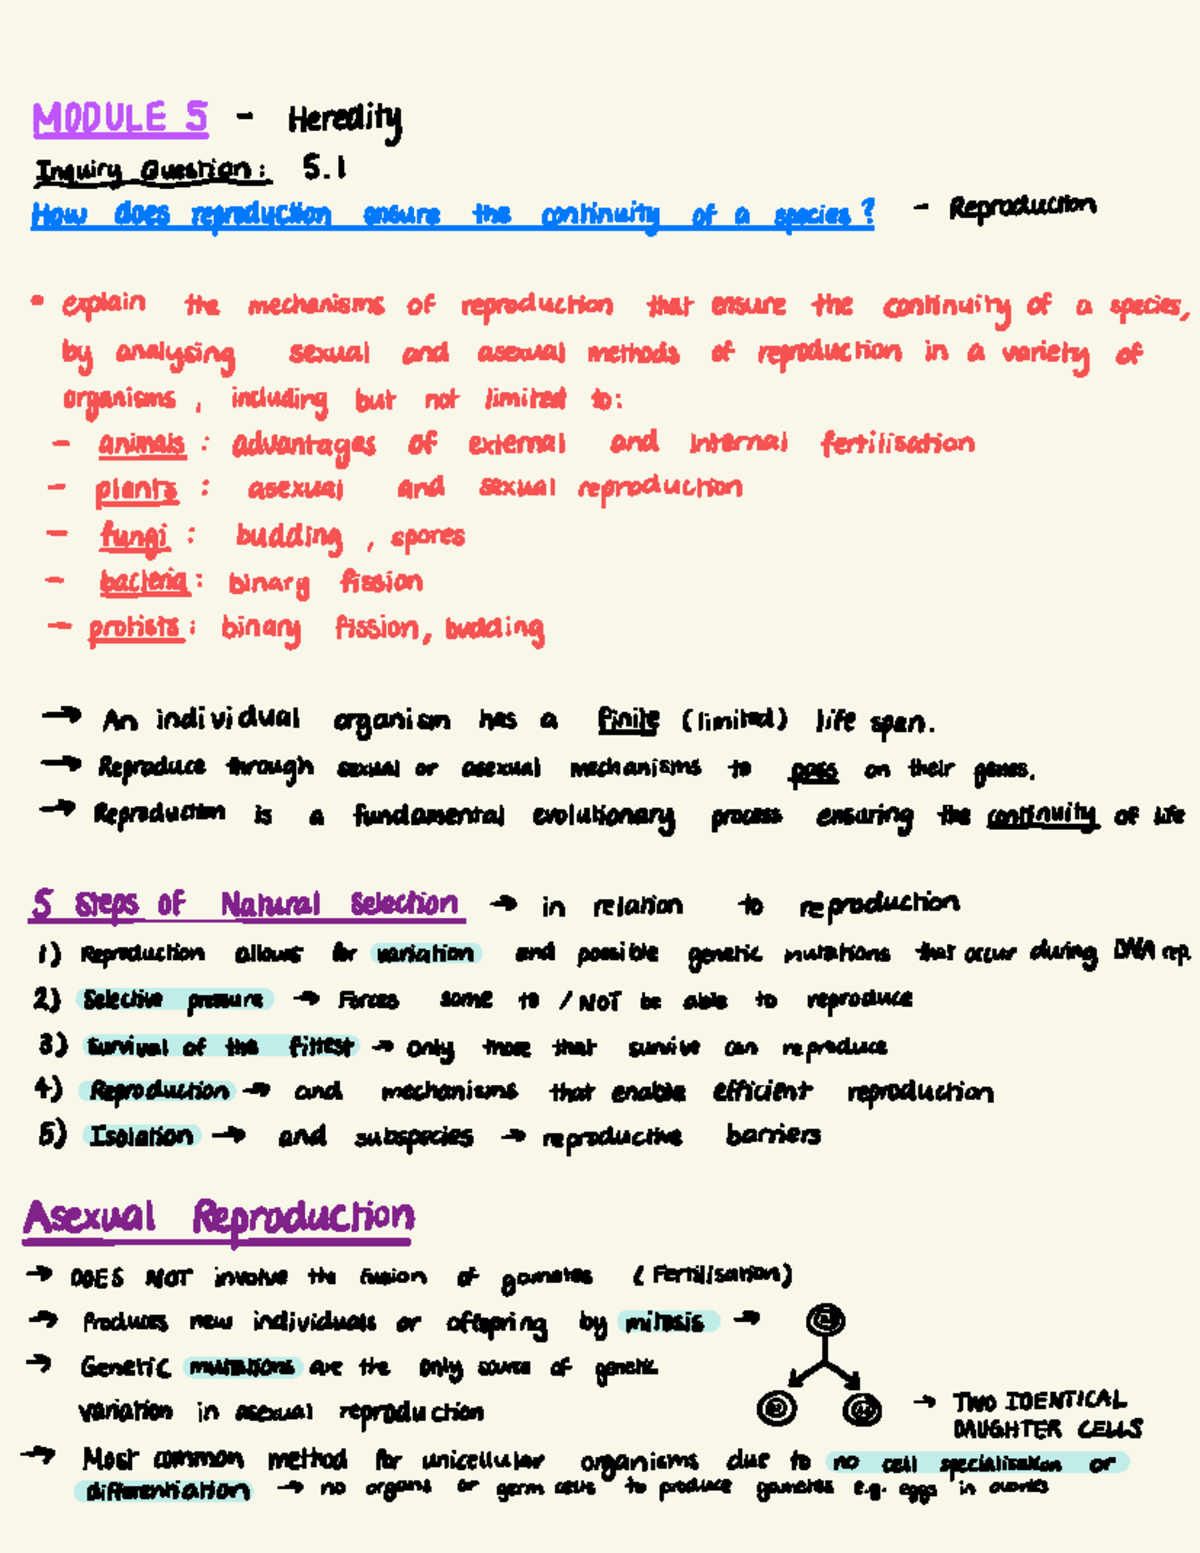 MODULE 5 - Heredity
Inquiry Question: 5.1
How does reproduction ensure the continuity of a species? - Reproduction
• explain the mechanisms of reproduction that ensure the continuity of a species,
by analysing sexual and asexual methods of reproduction in a variety of
organisms, including but not limited to:
- animals: advantages of external and internal fertilisation
- plants: asexual and sexual reproduction
- fungi: budding, spores
- bacteria: binary fission
- protists: binary fission, budding
→ An individual organism has a finite (limited) life span.
→ Reproduce through sexual or asexual mechanisms to pass on their genes.
→ Reproduction is a fundamental evolutionary process ensuring the continuity of life
5 Steps of Natural Selection → in relation to reproduction
1) Reproduction allows for variation and possible genetic mutations that occur during DNA rep.
2) Selective pressure → Forces some to / NOT be able to reproduce
3) Survival of the fittest → only those that survive can reproduce
4) Reproduction → and mechanisms that enable efficient reproduction
5) Isolation → and subspecies → reproductive barriers
Asexual Reproduction
→ DOES NOT involve the fusion of gametes (Fertilisation)
→ Produces new individuals or offspring by mitosis →
→ Genetic mutations are the only source of genetic
variation in asexual reproduction
→ TWO IDENTICAL
DAUGHTER CELLS
→ Most common method for unicellular organisms due to no cell specialisation or
differentiation → no organs or germ cells to produce gametes e.g. eggs in ovaries